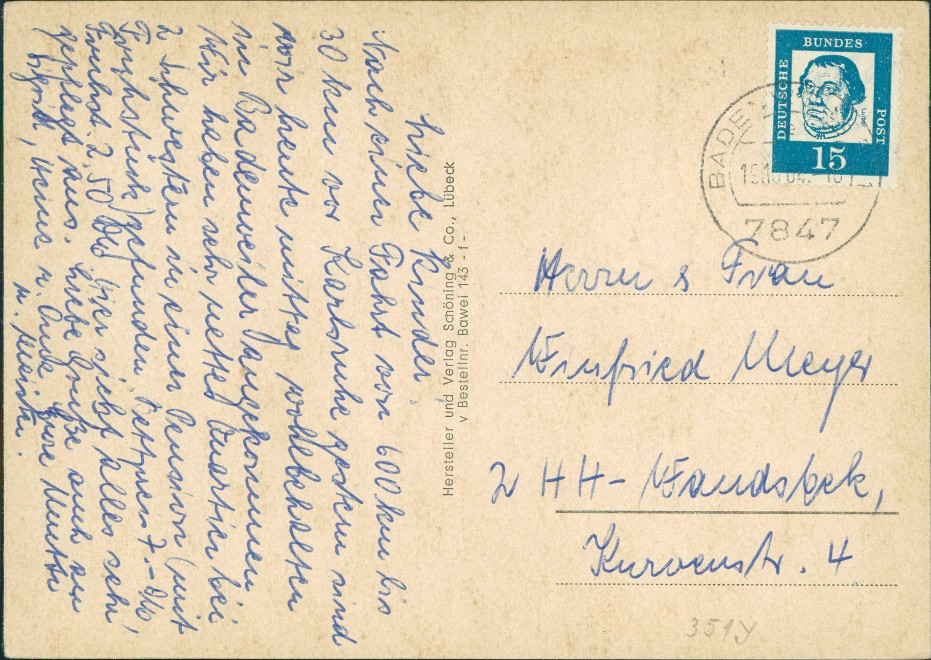 Liebe Kinder,
Nach einer Fahrt von 600 km bis
30 km vor Karlsruhe gestern sind
wir heute mittag wohlbehalten
in Badenweiler angekommen
Wir haben sehr nettes Quartier bei
2 Schwestern in einer Pension (mit
Frühstück) gefunden Bettpreis 7.- DM,
Frühst. 2,50 DM hier sieht alles sehr
gepflegt aus. Liebe Grüße auch an
Sigrid, Heinz u. Eure Mutti
u.
Hersteller und Verlag Schöning & Co., Lübeck
v Bestellnr. Bawei 143 - f -
DEUTSCHE BUNDES POST
15
BADENWEILER
7847
Herrn & Frau
Winfried Meyer
2 HH - Wandsbek,
Kurvenstr. 4
351y